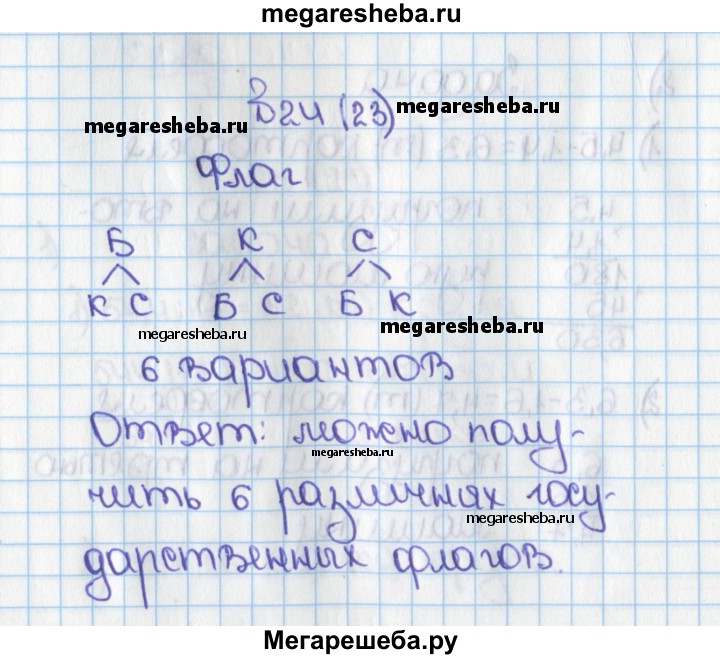 megaresheba.ru
В24 (23) megaresheba.ru
megaresheba.ru
Флаг
Б К С
К С Б С Б К
megaresheba.ru megaresheba.ru
6 вариантов
Ответ: можно полу-
megaresheba.ru
чить 6 различных госу-
megaresheba.ru
дарственных флагов.
Мегарешеба.ру